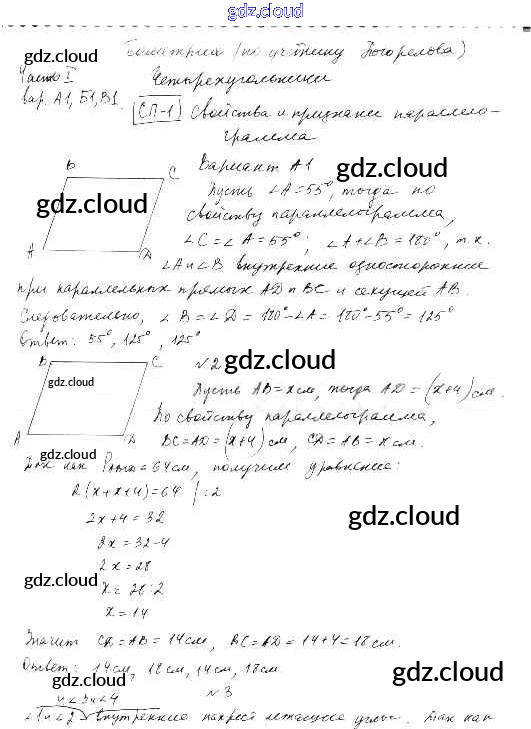 gdz.cloud
Геометрия (по учебнику Погорелова)
Часть I Четырехугольники
вар. А1, Б1, В1.
СП-1 Свойства и признаки параллело-
грамма
gdz.cloud gdz.cloud
Вариант А1
B C
Пусть ∠A = 55°, тогда по
gdz.cloud
свойству параллелограмма,
∠C = ∠A = 55°; ∠A + ∠B = 180°, т.к.
A D
∠A и ∠B внутренние односторонние
при параллельных прямых AD и BC и секущей AB.
Следовательно, ∠B = ∠D = 180° - ∠A = 180° - 55° = 125°
Ответ: 55°, 125°, 125°
B C №2
gdz.cloud
Пусть AB = x см, тогда AD = (x+4) см.
По свойству параллелограмма,
A D
BC = AD = (x+4) см, CD = AB = x см.
Так как = 64 см, получим уравнение:
2(x+x+4) = 64 | :2
2x + 4 = 32
gdz.cloud
2x = 32 - 4
2x = 28
gdz.cloud
x = 28 : 2
x = 14
Значит CD = AB = 14 см, BC = AD = 14 + 4 = 18 см.
Ответ: 14 см, 18 см, 14 см, 18 см.
gdz.cloud gdz.cloud
№3
внутренние накрест лежащие углы. Так как